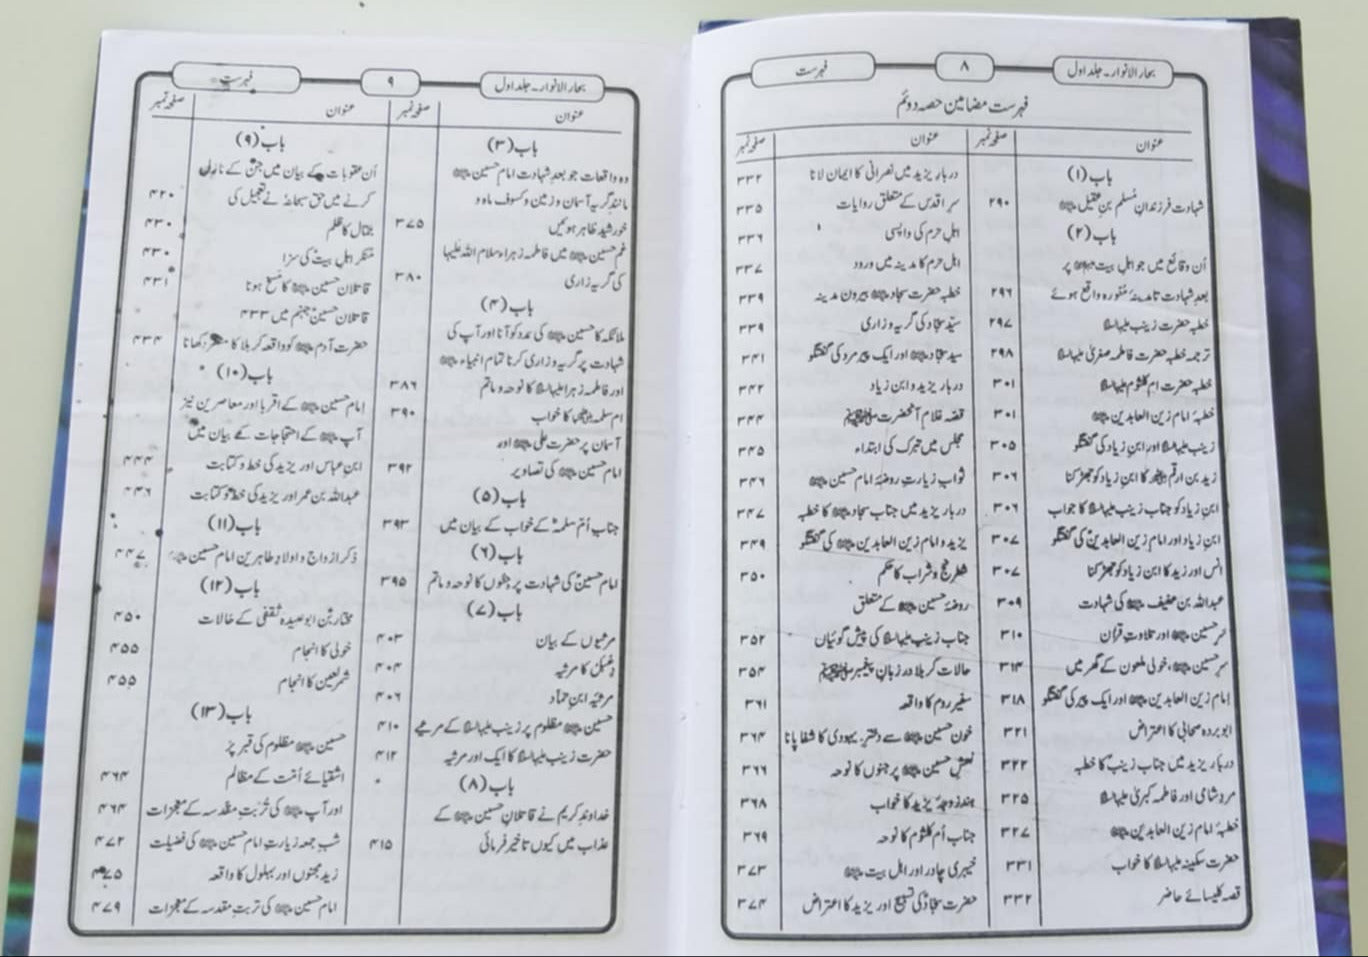 بحار الانوار۔ جلد اول
۸
فہرست
فہرست مضامین حصہ دوئم
عنوان صفحہ نمبر
باب (۱)
شہادت فرزندانِ مُسلم بن عقیل ۲۹۰
باب (۲)
اُن وقائع میں جو اہلِ بیت پر
بعد شہادت تا مدینۂ منورہ واقع ہوئے ۲۹۶
خطبہ حضرت زینب علیہا السلام ۲۹۷
ترجمہ خطبہ حضرت فاطمہ صغریٰ علیہا السلام ۲۹۸
خطبہ حضرت ام کلثوم علیہا السلام ۳۰۱
خطبۂ امام زین العابدین ۳۰۱
زینب علیہا السلام اور ابنِ زیاد کی گفتگو ۳۰۵
زید بن ارقم کا ابنِ زیاد کو جھڑکنا ۳۰۶
ابنِ زیاد کو جناب زینب علیہا السلام کا جواب ۳۰۶
ابنِ زیاد اور امام زین العابدین کی گفتگو ۳۰۷
انس اور زید کا ابن زیاد کو جھڑکنا ۳۰۷
عبداللہ بن عفیف کی شہادت ۳۰۹
سرِ حسین اور تلاوتِ قرآن ۳۱۰
سرِ حسین، خولی ملعون کے گھر میں ۳۱۴
امام زین العابدین اور ایک پیر کی گفتگو ۳۱۸
ابو بردہ صحابی کا اعتراض ۳۲۱
دربارِ یزید میں جناب زینب کا خطبہ ۳۲۲
مردِ شامی اور فاطمہ کبریٰ علیہا السلام ۳۲۵
خطبۂ امام زین العابدین ۳۲۷
حضرت سکینہ علیہا السلام کا خواب ۳۳۱
قصہ کلیسائے حاضر ۳۳۲
عنوان صفحہ نمبر
دربارِ یزید میں نصرانی کا ایمان لانا ۳۳۲
سرِ اقدس کے متعلق روایات ۳۳۵
اہلِ حرم کی واپسی ۳۳۶
اہلِ حرم کا مدینہ میں ورود ۳۳۷
خطبہ حضرت سجاد بیرون مدینہ ۳۳۹
سیّد سجاد کی گریہ و زاری ۳۳۹
سید سجاد اور ایک پیر مرد کی گفتگو ۳۴۱
دربارِ یزید و ابن زیاد ۳۴۲
قصّہ غلام آنحضرت ۳۴۴
مجلس میں تبرک کی ابتداء ۳۴۵
ثواب زیارتِ روضۂ امام حسین ۳۴۶
دربارِ یزید میں جناب سجاد کا خطبہ ۳۴۷
یزید و امام زین العابدین کی گفتگو ۳۴۹
شطرنج و شراب کا حکم ۳۵۰
روضۂ حسین کے متعلق
جناب زینب علیہا السلام کی پیش گوئیاں ۳۵۲
حالات کربلا در زبانِ پیغمبر ۳۵۴
سفیرِ روم کا واقعہ ۳۶۱
خونِ حسین سے دخترِ یہودی کا شفا پانا ۳۶۴
نعشِ حسین پر جنوں کا نوحہ ۳۶۶
ہند زوجۂ یزید کا خواب ۳۶۸
جناب اُم کلثوم کا نوحہ ۳۶۹
خیبری چادر اور اہل بیت ۳۷۳
حضرت سجاد کی تسبیح اور یزید کا اعتراض ۳۷۴
بحار الانوار۔ جلد اول
۹
فہرست
عنوان صفحہ نمبر
باب (۳)
وہ واقعات جو بعدِ شہادت امام حسین
مانند گریہ آسمان و زمین و کسوف ماہ و
خورشید ظاہر ہوئیں ۳۷۵
غم حسین میں فاطمہ زہراء سلام اللہ علیہا
کی گریہ زاری ۳۸۰
باب (۴)
ملائکہ کا حسین کی مدد کو آنا اور آپ کی
شہادت پر گریہ و زاری کرنا تمام انبیاء
اور فاطمہ زہرا علیہا السلام کا نوحہ و ماتم ۳۸۶
ام سلمہ کا خواب ۳۹۰
آسمان پر حضرت علی اور
امام حسین کی تصاویر ۳۹۲
باب (۵)
جناب اُم سلمہ کے خواب کے بیان میں ۳۹۳
باب (۶)
امام حسین کی شہادت پر جنّوں کا نوحہ و ماتم ۳۹۵
باب (۷)
مرثیوں کے بیان ۴۰۳
کا مرثیہ ۴۰۴
مرثیہ ابنِ حماد ۴۰۶
حسین مظلوم پر زینب علیہا السلام کے مرثیے ۴۱۰
حضرت زینب علیہا السلام کا ایک اور مرثیہ ۴۱۲
باب (۸)
خداوندِ کریم نے قاتلانِ حسین کے
عذاب میں کیوں تاخیر فرمائی ۴۱۵
عنوان صفحہ نمبر
باب (۹)
اُن عقوبات کے بیان میں جن کے نازل
کرنے میں حق سبحانہ نے تعجیل کی ۴۲۰
جمّال کا ظلم ۴۳۰
منکرِ اہلِ بیت کی سزا ۴۳۰
قاتلانِ حسین کا مسخ ہونا ۴۳۱
قاتلانِ حسین جہنم میں ۴۳۳
حضرت آدم کو واقعہ کربلا کا دکھانا ۴۳۴
باب (۱۰)
امام حسین کے اقربا اور معاصرین نیز
آپ کے احتجاجات کے بیان میں
ابنِ عباس اور یزید کی خط و کتابت ۴۴۴
عبداللہ بن عمر اور یزید کی خط و کتابت ۴۴۶
باب (۱۱)
ذکر ازواج و اولادِ طاہرین امام حسین ۴۴۷
باب (۱۲)
مختار بن ابوعبیدہ ثقفی کے حالات ۴۵۰
خولی کا انجام ۴۵۵
شمر لعین کا انجام ۴۵۵
باب (۱۳)
حسین مظلوم کی قبر پر
اشقیائے اُمّت کے مظالم ۴۶۴
اور آپ کی تُربتِ مقدسہ کے معجزات ۴۶۴
شب جمعہ زیارتِ امام حسین کی فضیلت ۴۷۲
زید مجنوں اور بہلول کا واقعہ ۴۷۵
امام حسین کی تربتِ مقدسہ کے معجزات ۴۷۹